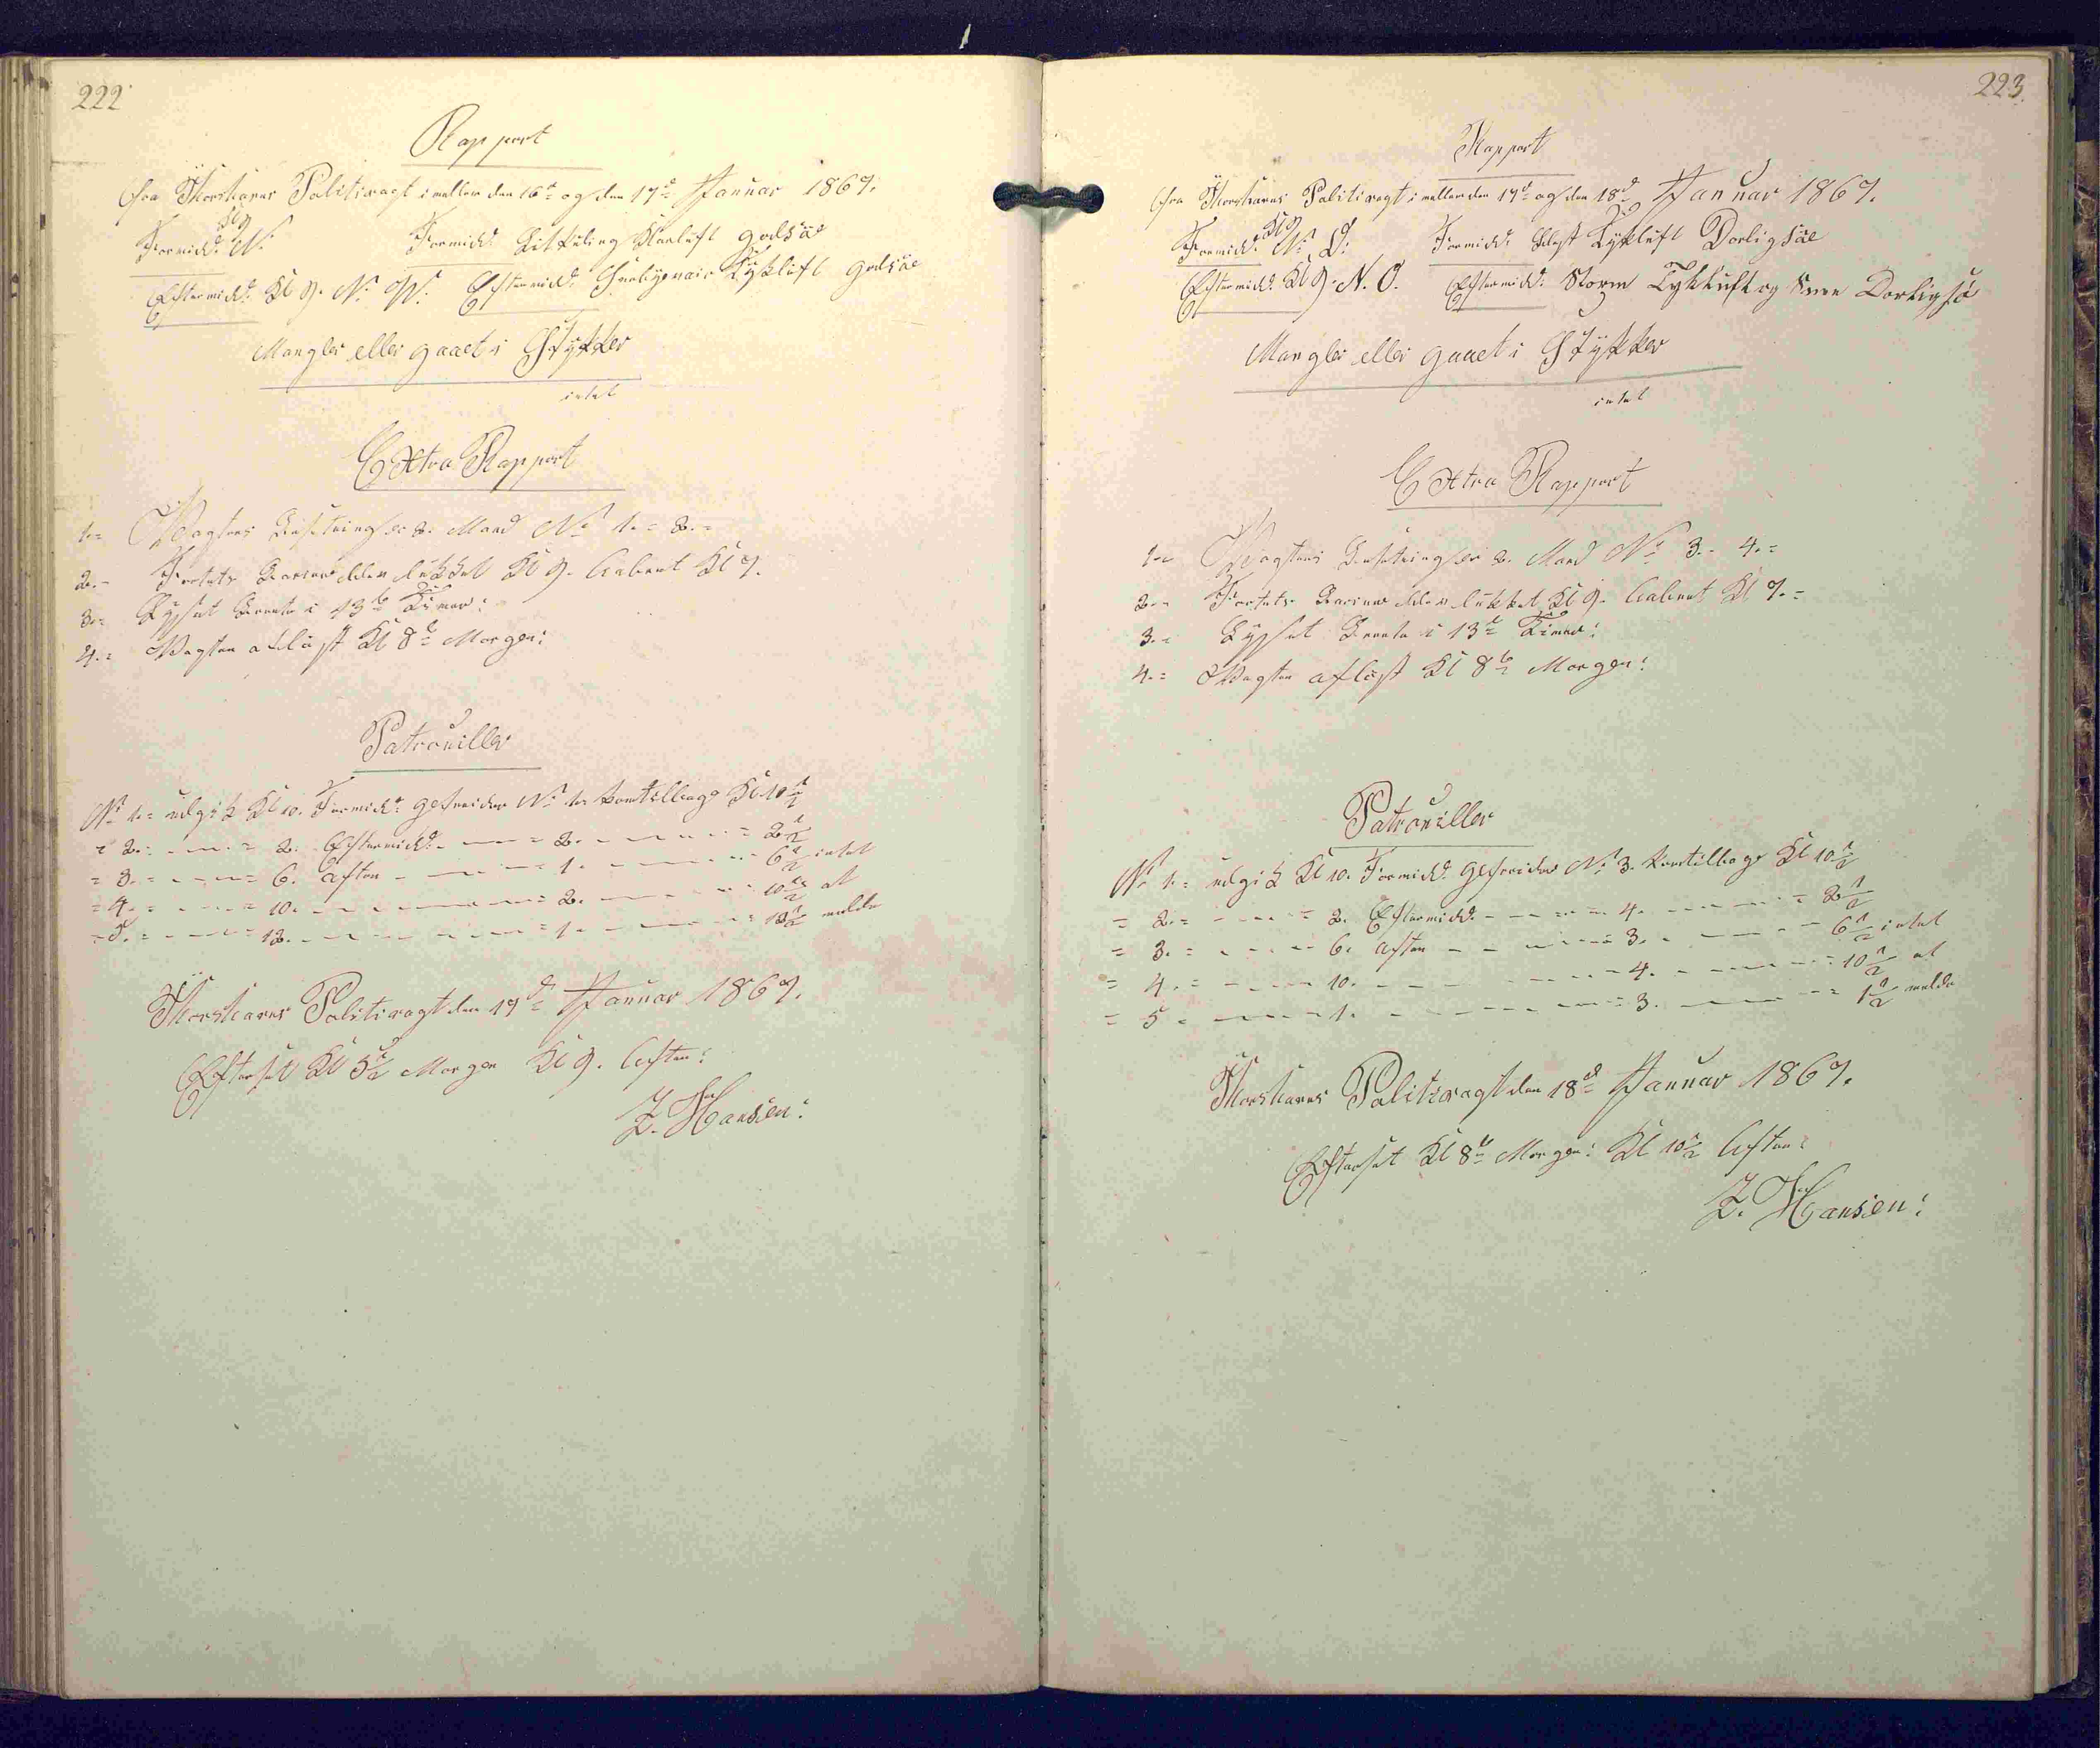 222
Rapport
fra Thorshavns Politivagt imellem den 16de og den 17de Januar 1867.
Kl 9
Formidd: N. Formidd: Litkuling Klarluft godsöe
Eftermidd: Kl 9. N. W: Eftermidd: Tykluft godsöe
Mangler eller gaaet i Stykker
intet
Extra Rapport
1.= Vagtens Besetning er 2. Mand No 1. = 2. =
2.- Fortets Barrierer lukket Kl 9. Aabent Kl 7.
3.= Lyset Brente i 13te Timer:
4.= Vagten aflöst Kl 8te Morgen:
Patrouiller
No 1. = udgik Kl 10. Formidd: Gefreider No 1. kom tilbage Kl 10 1/2
= 2. = - - - = 2. Eftermidd: - - - = 2. - - - = 2 1/2
= 3. = - - - = 6. Aften - - - = 1. - - - 6 1/2 intet
= 4. = - - - = 10. - - - = 2. - - - 10 1/2 at
= 5. = - - - = 12. - - - = 1. - - - = 12 1/2 melde
Thorshavns Politivagt den 17de Januar 1867.
Efterset Kl 5 1/2 Morgen Kl 9. Aften:
Z. Hansen:
223.
Rapport
fra Thorshavns Politivagt imellem den 17de og den 18de Januar 1867.
Kl 9
Formidd: N. O: Formidd: Blest Tykluft Dorligsöe
Eftermidd: Kl 9. N. O. Eftermidd: Storm Tykluft og Snee Dorligsö
Mangler eller gaaet i Stykker
intet
Extra Rapport
1.= Vagtens Besetning er 2. Mand No 3. - 4. =
2.= Fortets Barrierer lukket Kl 9. Aabent Kl 7. =
3.= Lyset Brente i 13te Timer:
4.= Vagten aflöst Kl 8te Morgen:
Patrouiller
No 1. = udgik Kl 10. Formidd: Gefreider No 3. kom tilbage Kl 10 1/2
= 2. = - - - = 2. Eftermidd: - - - = 4. - - - = 2 1/2
= 3. = - - - 6. Aften - - - = 3. - - - 6 1/2 intet
= 4. = - - - 10. - - - 4. - - - 10 1/2 at
= 5 = - - - 1. - - - = 3. - - - = 1 1/2 melde
Thorshavns Politivagt den 18de Januar 1867.
Efterset Kl 8te Morgen: Kl 10 1/2 Aften:
Z. Hansen: